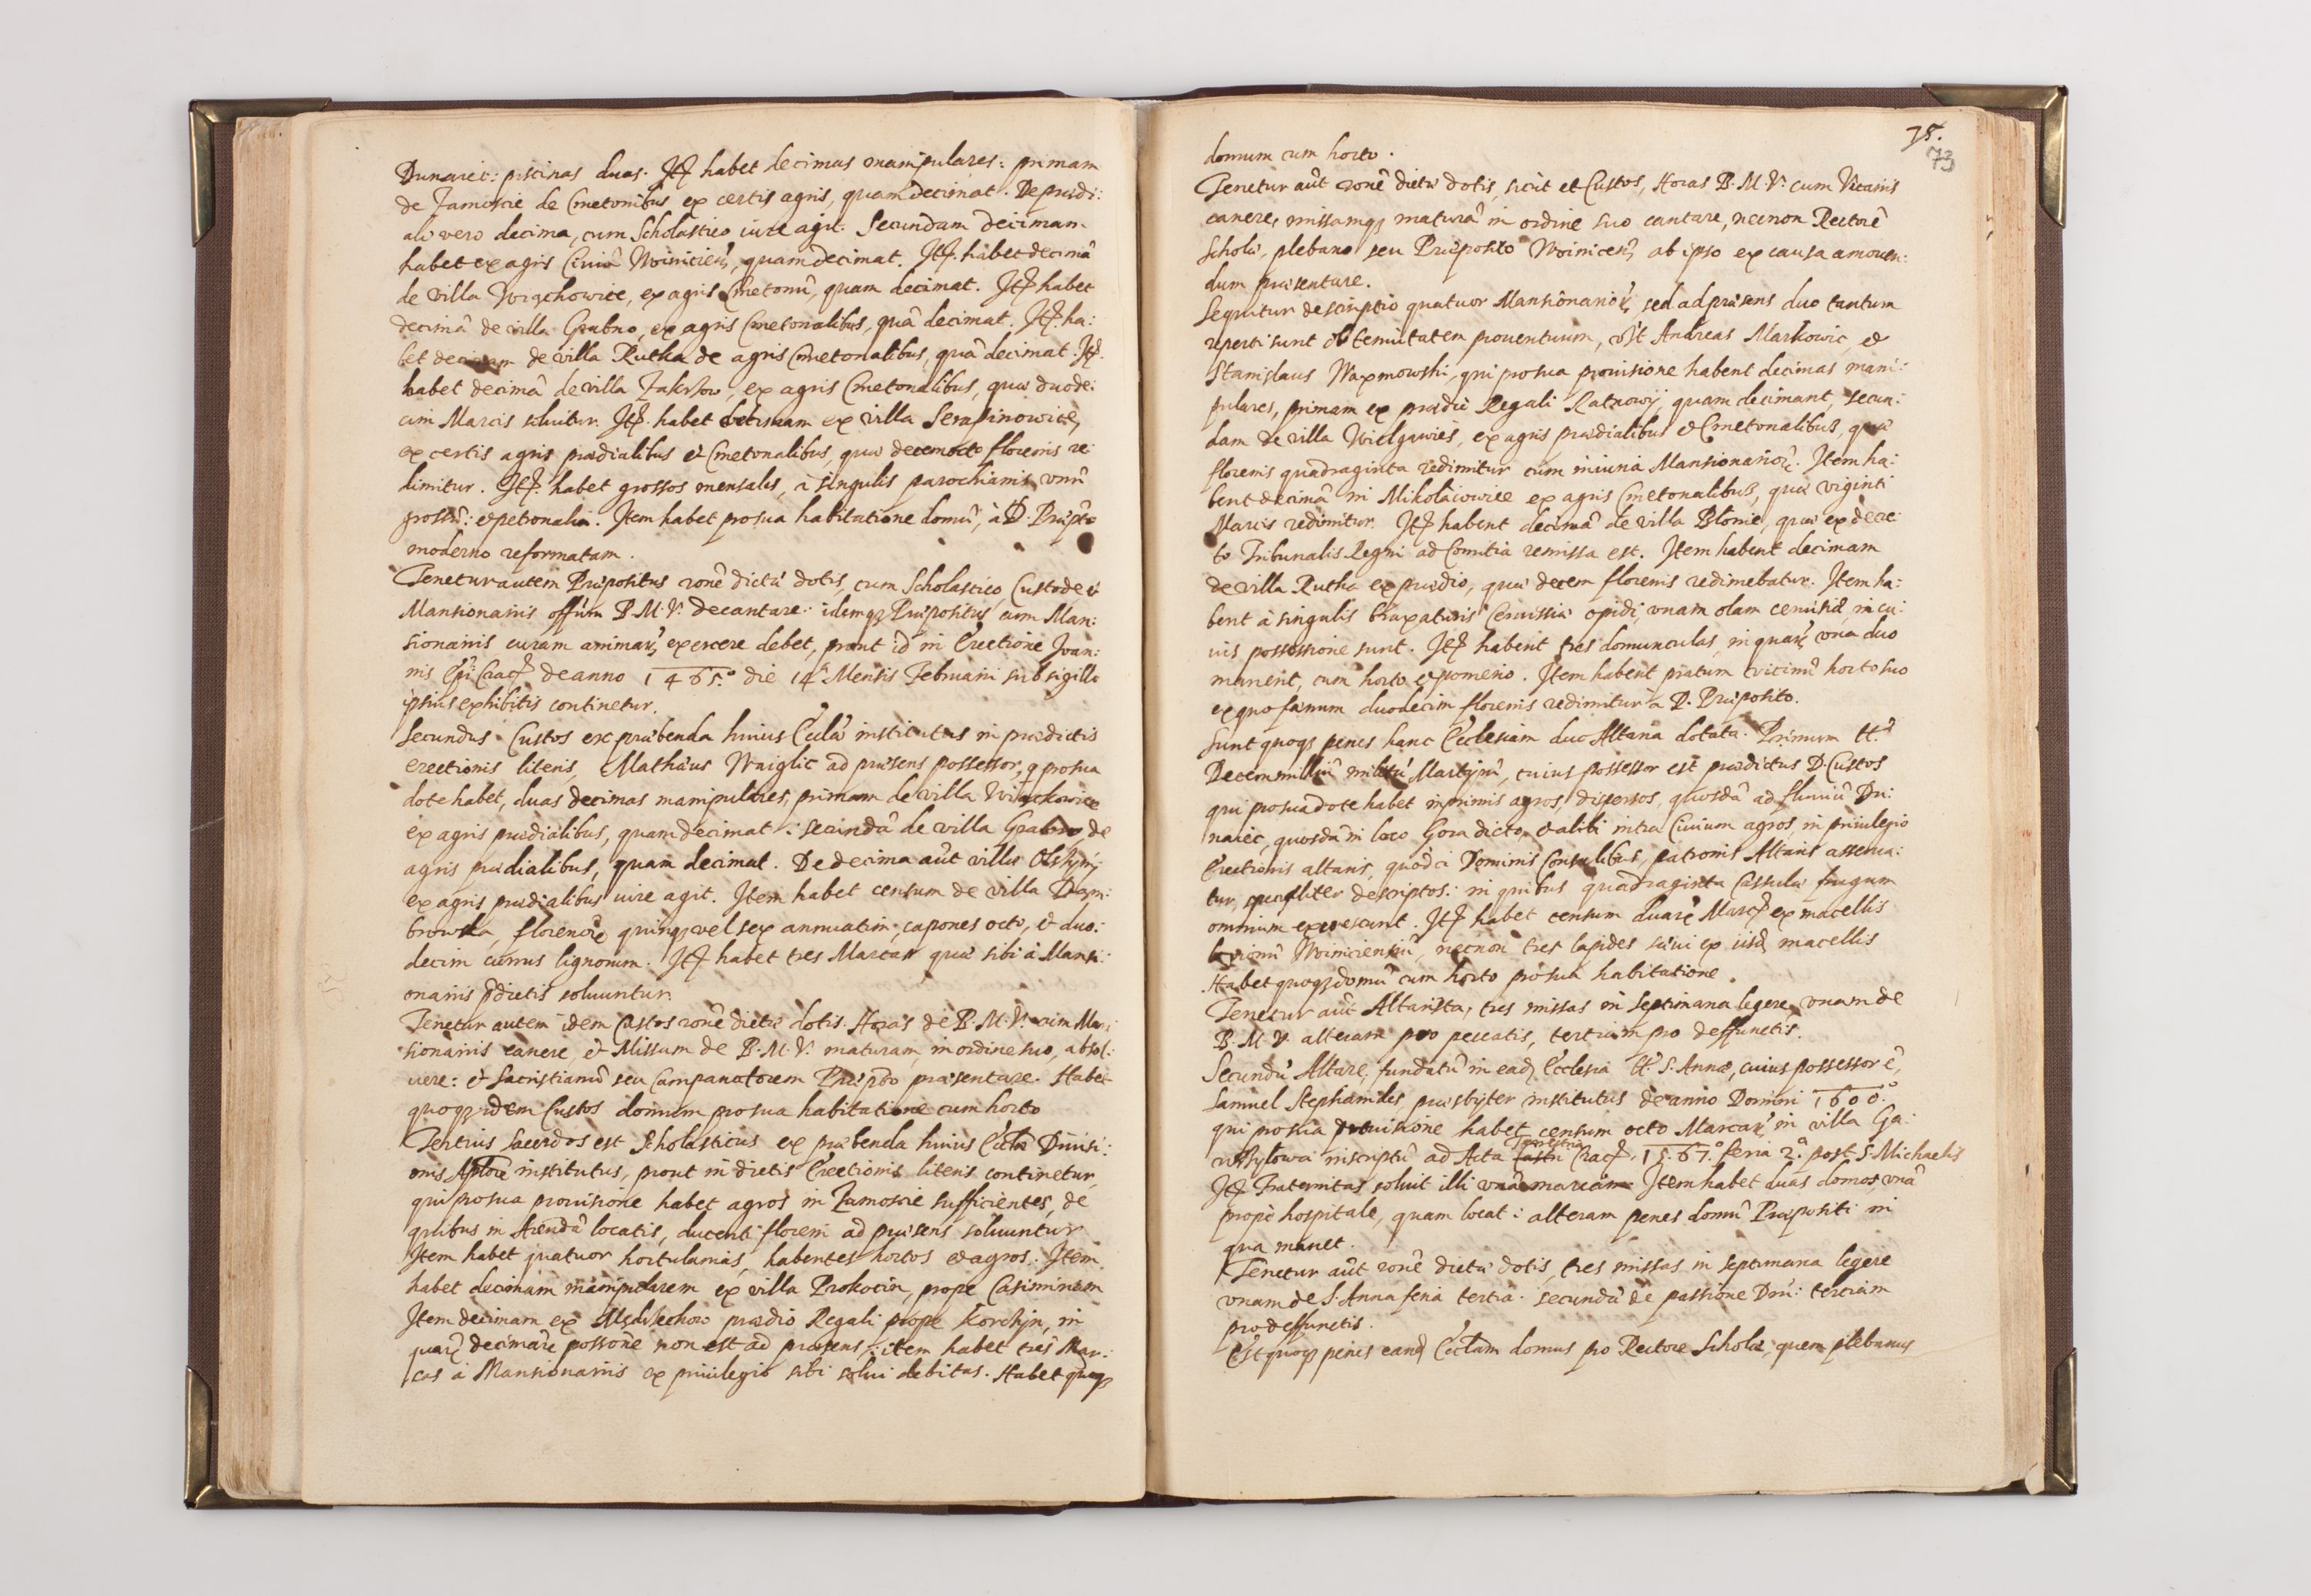 Dunaiec: piscinas duas. Itē habet decimas manipulares: primam
de Zamoscie de Cmetonibus, ex certis agris, quam decimat. De prædi:
ali vero decima, cum Scholastico iure agit. Secundam deciman
habet ex agris Ciuiū Woinicień, quam decimat. Itē. habet decimā
de villa Wiąchowice, ex agris Cmetonū, quam decimat. Itē habet
decimā de villa Grabno, ex agris Cmetonalibus, quā decimat. Itē. ha:
bet decimam de villa Rutka de agris Cmetonalibus, quā decimat. Itē.
habet decimā de villa Zakrzow, ex agris Cmetonalibus, quæ duode:
cim Marcis soluitur. Itē. habet decimam ex villa Serafinowice,
ex certis agris prædialibus et Cmetonalibus, quæ decemocto florenis re:
dimitur. Itē. habet grossos mensales, à singulis parochianis vnū
grossū: et petronalia. Item habet pro sua habitatione domū, à D. Præpto
moderno reformatam.
Tenetur autem Præpositus ronē dictæ dotis, cum Scholastico, Custode et
Mansionariis offium B. M. V. decantare: idemq; Præpositus cum Man:
sionariis curam animar, exercere debet, prout id in Erectione Joan:
nis Epi Crac̄ de anno 1465.° die 14 Mensis Februarii sub sigillo
ipsius exhibitis continetur.
Secundus Custos ex præbenda huius Eccliæ institutus in prædictis
erectionis literis, Mathæus Waiglic ad præsens possessor, q pro sua
dote habet, duas decimas manipulares, primam de villa Wiąckowice
ex agris prædialibus, quam decimat: secundā de villa Grabno, de
agris prædialibus, quam decimat. De decima aūt villæ Olszyny
ex agris prædialibus iure agit. Item habet censum de villa Dąm:
browka, florenorū quinq; vel sex annuatim, capones octo, et duo:
decim currus lignorum. Itē habet tres Marcas quæ sibi à Mansi:
onariis p̄dictis soluuntur.
Tenetur autem idem Custos ronē dictæ dotis. Horas de B. M. V. cum Man:
sionariis canere, et Missam de B. M. V. maturam, in ordine suo, absol:
uere: et Sacristianū seu Campanatorem Præpto præsentare. Habet
quoq; idem Custos domum pro sua habitatione cum horto
Tertius Sacerdos est Scholasticus ex præbenda huius Eccliæ Diuisi:
onis Aplorū institutus, prout in dictis Erectionis literis continetur,
qui pro sua prouisione habet agros in Zamoscie sufficientes, de
quibus in Arendā locatis, ducenti floreni ad præsens soluuntur
Item habet quatuor hortulanias, habentes hortos et agros. Item
habet decimam manipularem ex villa Prokocin, prope Casimiriam
Item decimam ex prædio Regali prope Korchyn, in
quarū decimarū possone non est ad præsens: item habet tres Mar:
cas à Mansionariis ex priuilegio sibi solui debitas. Habet quoq;
75.
73
domum cum horto.
Tenetur aūt ronē dictæ dotis, sicut et Custos, Horas B. M. V. cum Vicariis
canere, missamq; maturā in ordine suo cantare, necnon Rectorē
Scholæ, plebano seu Præposito Woinicen, ab ipso ex causa amouen:
dum præsentare.
Sequitur descriptio quatuor Mansionarior, sed ad præsens duo tantum
reperti sunt ob tenuitatem prouentuum, vʒt Andreas Markowic, et
Stanislaus Waxmowski, qui pro sua prouisione habent decimas mani:
pulares, primam ex prædio Regali Ratnowy, quam decimant, secun:
dam de villa Wielgawies, ex agris prædialibus et Cmetonalibus, quæ
florenis quadraginta redimitur cum iniuria Mansionariorū. Item ha:
bent decimā in Mikołaiowice ex agris Cmetonalibus, quæ viginti
Marcis redimitur. Itē habent decimā de villa Błonie, quæ ex decre:
to Tribunalis Regni ad Comitia remissa est. Item habent decimam
de villa Rutka ex prædio, quæ decem florenis redimebatur. Item ha:
bent à singulis braxaturis Ceruisiæ opidi, vnam olam ceruisiæ, in cu:
ius possessione sunt. Itē habent tres domunculas, in quar, vna duo
manent, cum horto et pomerio. Item habent pratum vicinū horto suo
ex quo fœnum duodecim florenis redimitur à D. Præposito.
Sunt quoq; penes hanc Ecclesiam duo Altaria dotata. Primum tt.
Decem milliū militū Martyrū, cuius possessor est prædictus D. Custos
qui pro sua dote habet inprimis agros, dispersos, quosdā ad fluuiū Du:
naiec, quosdā in loco Gora dicto, et alibi intra Ciuium agros, in priuilegio
Erectionis altaris, quod ci Dominis Consulibus, patronis Altaris asserua:
tur, specialiter descriptos: in quibus quadraginta Cassulæ frugum
omnium excrescunt. Itē habet censum duarū Marc̄ ex macellis
lanionū Woiniciensiū, necnon tres lapides sæui ex iisd, macellis
Habet quoq; domū cum horto pro sua habitatione.
Tenetur aūt Altarista, tres missas in septimana legere, vnam de
B. M. V. alteram pro peccatis, tertiam pro deffunctis.
Secundū Altare, fundatū in ead, Ecclesia tt. S. Annæ, cuius possessor ē,
Samuel Stephanides, præsbyter institutus de anno Domini 1600.°
qui pro sua prouisione habet censum octo Marcar, in villa Ga:
inscriptū ad Acta Castri Terrestria Crac̄. 1567.° feria 2.ª post S. Michaelis
Itē Fraternitas soluit illi vnā marcam. Item habet duas domos, vnā
prope hospitale, quam locat: alteram penes domū Præpositi in
qua manet.
Tenetur aūt ronē dictæ dotis, tres missas in septimana legere
vnam de S. Anna feria tertia. secundā de passione Dni: tertiam
pro deffunctis.
Est quoq; penes eand, Eccliam domus pro Rectore Scholæ, quem plebanus